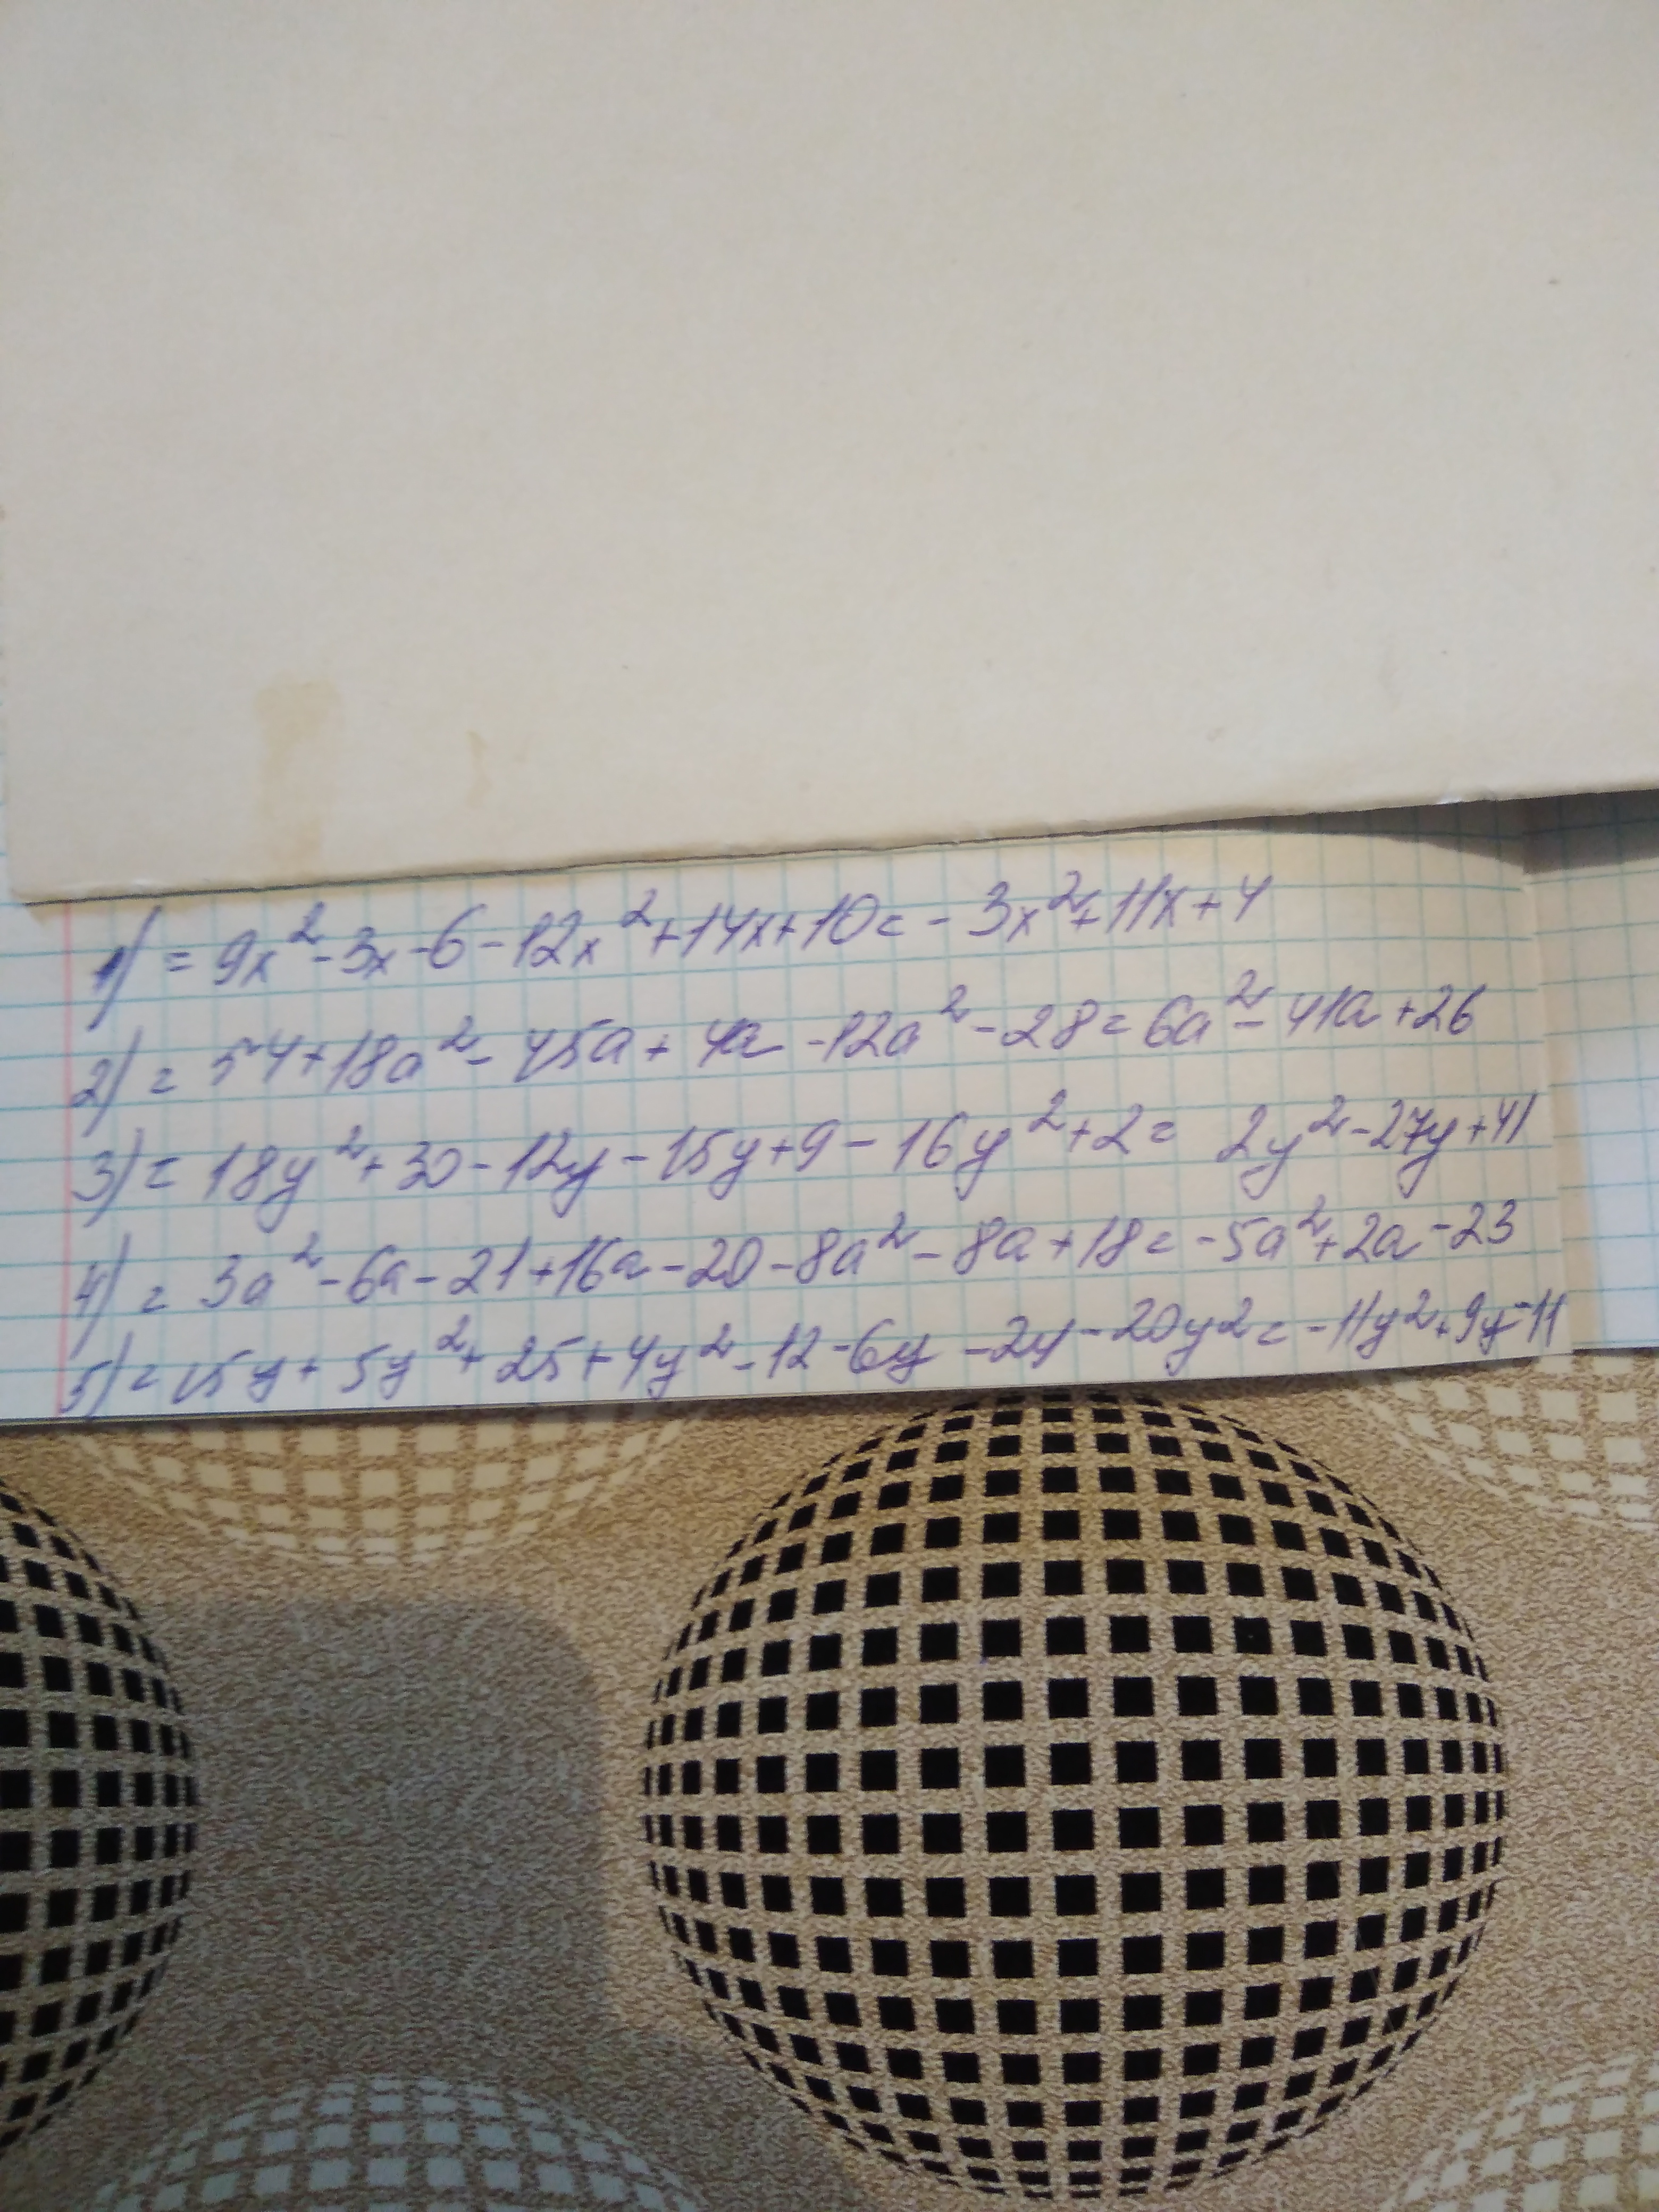 1) = 9x² - 3x - 6 - 12x² + 14x + 10 = - 3x² + 11x + 4
2) = 54 + 18a² - 45a + 4a - 12a² - 28 = 6a² - 41a + 26
3) = 18y² + 30 - 12y - 15y + 9 - 16y² + 2 = 2y² - 27y + 41
4) = 3a² - 6a - 21 + 16a - 20 - 8a² - 8a + 18 = - 5a² + 2a - 23
5) = 15y + 5y² + 25 + 4y² - 12 - 6y - 24 - 20y² = - 11y² + 9y - 11